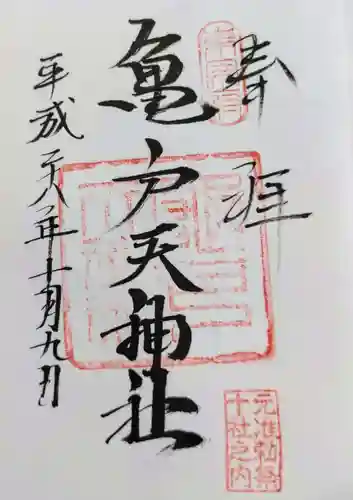 奉拝
亀戸天神社
平成二十八年十一月九日
元准勅祭
十社之内